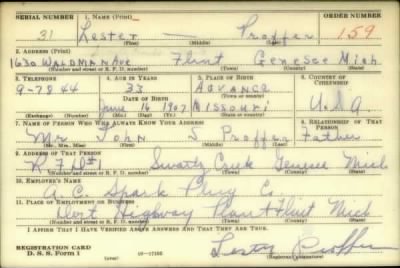 SERIAL NUMBER 1. NAME (Print) ORDER NUMBER
31 Lester — Proffer 159
(First) (Middle) (Last)
2. ADDRESS (Print)
1630 WALDMAN AVE Flint Genesee Mich
(Number and street or R. F. D. number) (Town) (County) (State)
3. TELEPHONE 4. AGE IN YEARS 5. PLACE OF BIRTH 6. COUNTRY OF CITIZENSHIP
9-7844 33 ADVANCE
DATE OF BIRTH (Town or county)
June 16 1907 Missouri U.S.A
(Exchange) (Number) (Mo.) (Day) (Yr.) (State or country)
7. NAME OF PERSON WHO WILL ALWAYS KNOW YOUR ADDRESS 8. RELATIONSHIP OF THAT PERSON
Mr John S Proffer Father
(Mr., Mrs., Miss) (First) (Middle) (Last)
9. ADDRESS OF THAT PERSON
Swartz Creek Genesee Mich
(Number and street or R. F. D. number) (Town) (County) (State)
10. EMPLOYER'S NAME
A.C. Spark Plug C.
11. PLACE OF EMPLOYMENT OR BUSINESS
Dort Highway Plant Flint Mich
(Number and street or R. F. D. number) (Town) (County) (State)
I AFFIRM THAT I HAVE VERIFIED ABOVE ANSWERS AND THAT THEY ARE TRUE.
REGISTRATION CARD
D. S. S. Form 1 (over) 16—17105 Lester Proffer
(Registrant's signature)